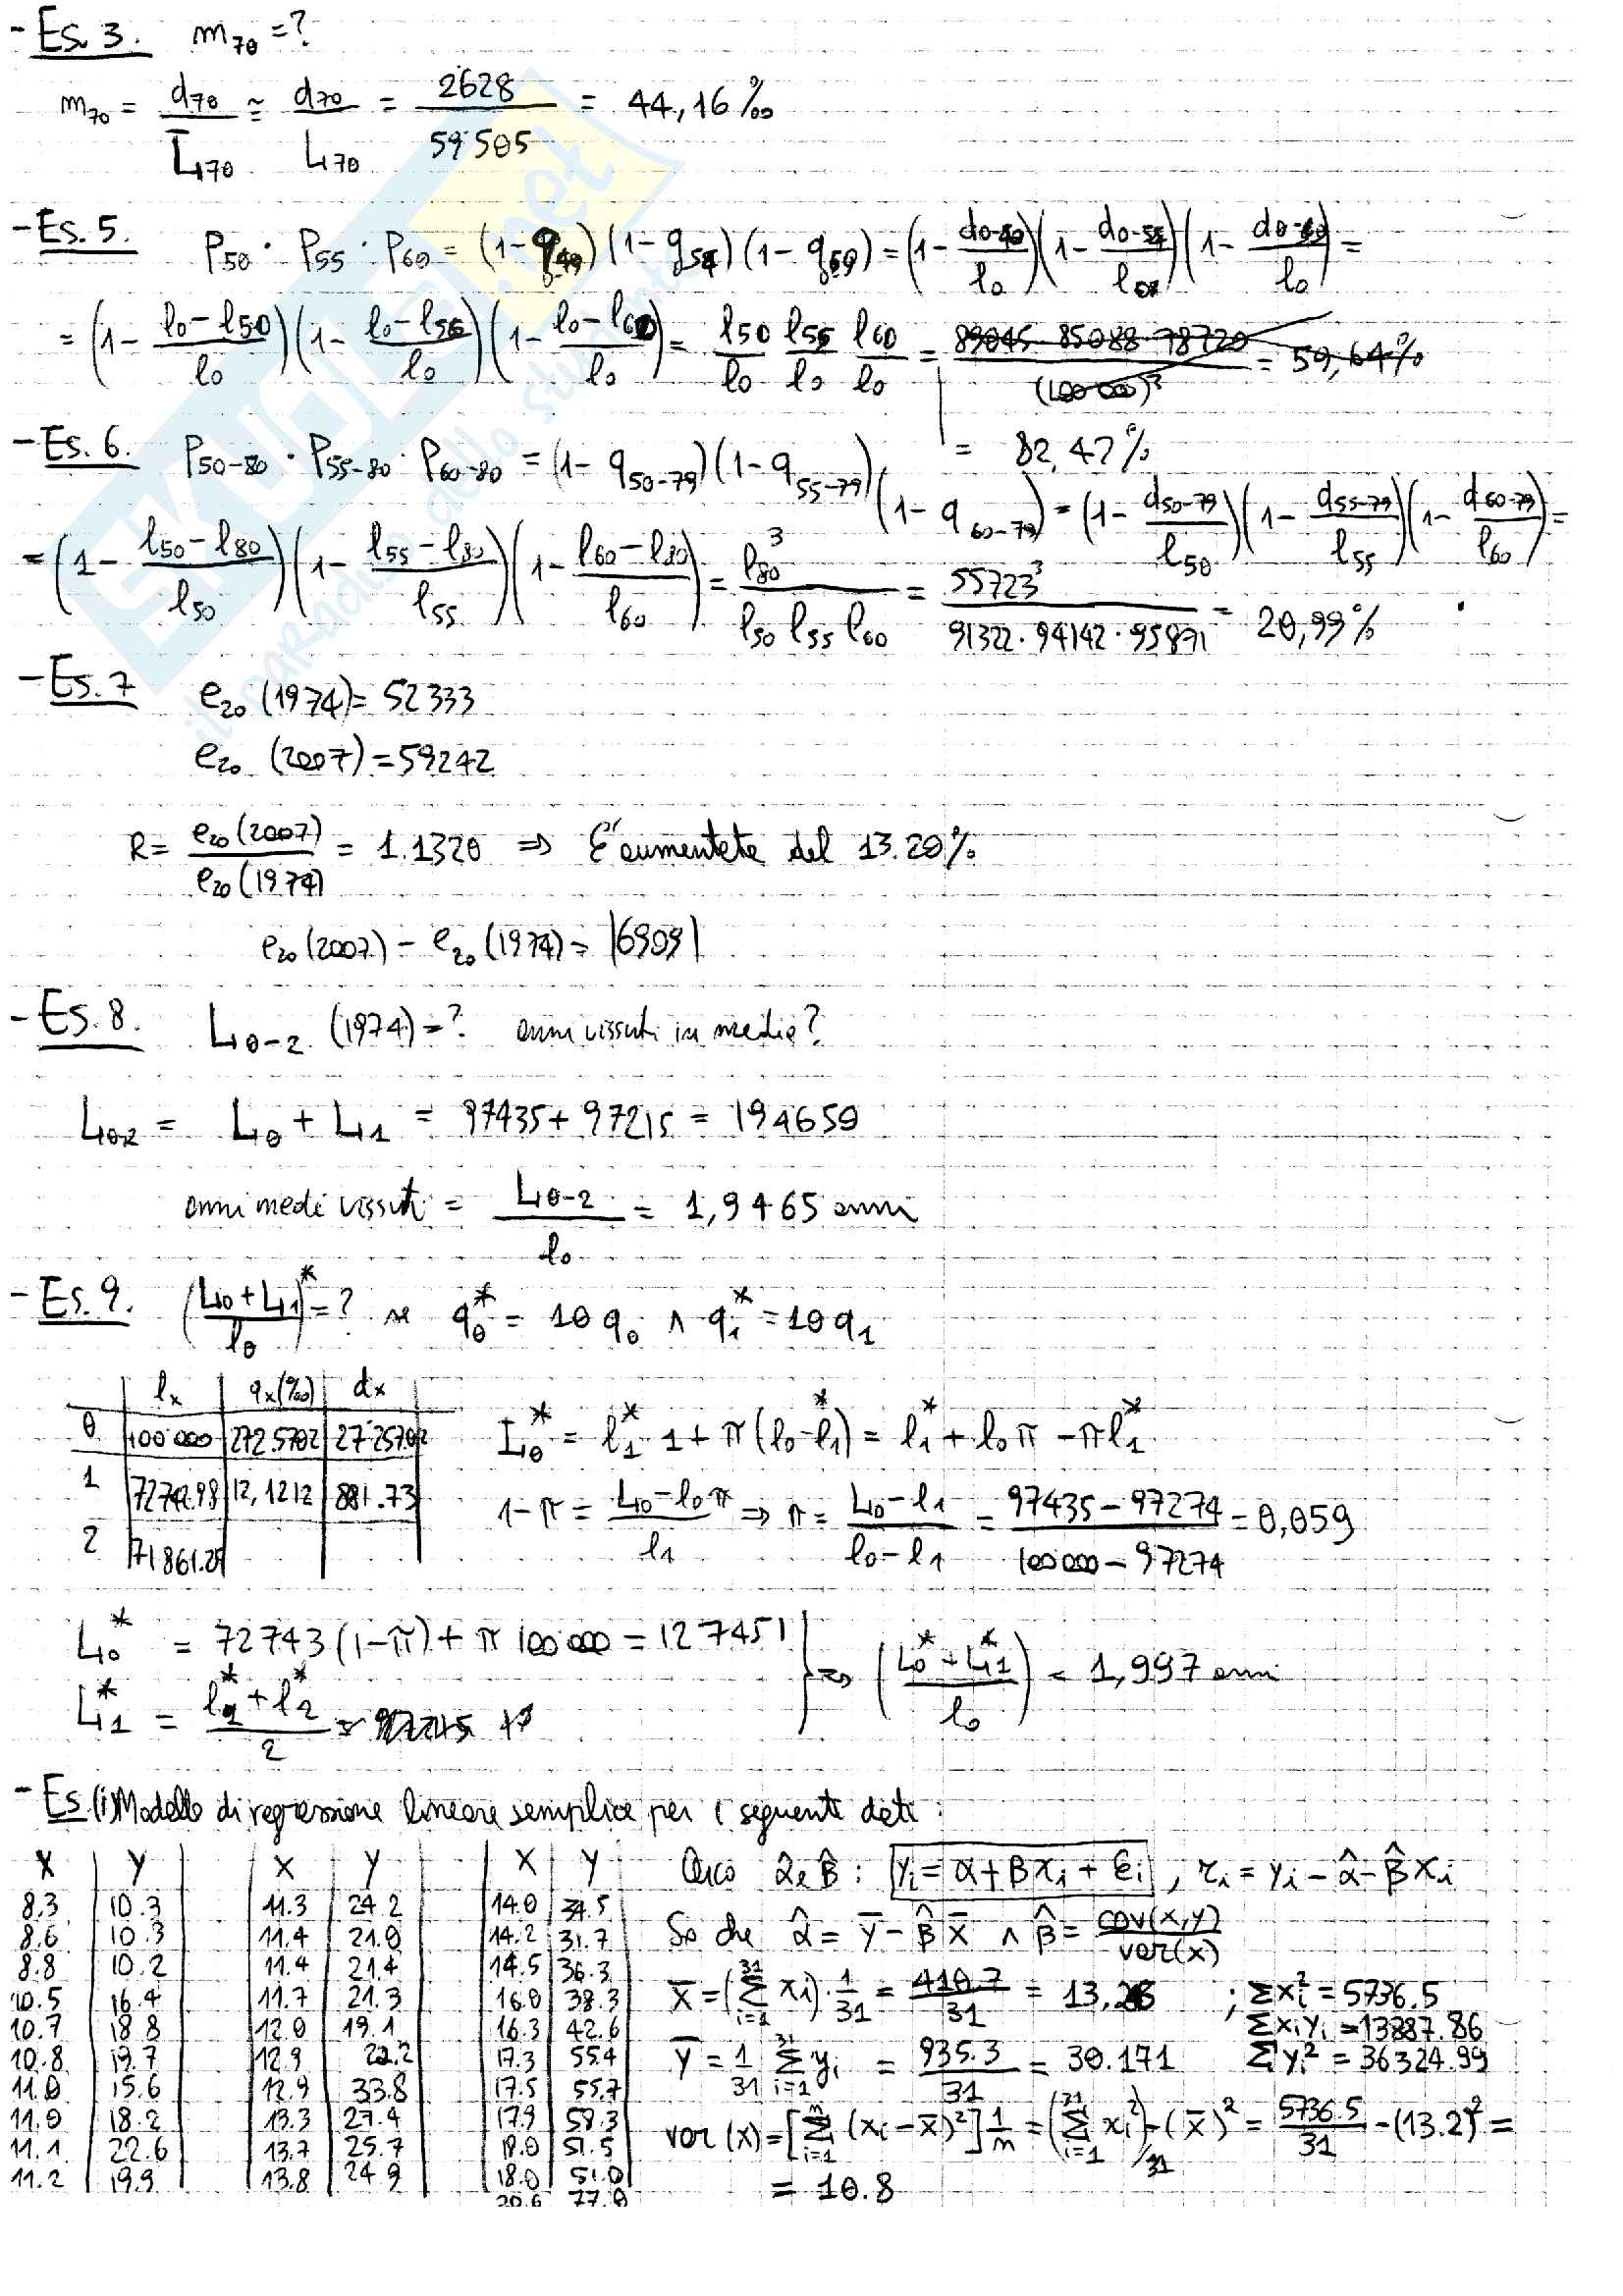 - Es. 3. m₇₀ = ?
m₇₀ = d₇₀/L̅₇₀ ≃ d₇₀/L₇₀ = 2628/59505 = 44,16 ‰
- Es. 5. P₅₀ · P₅₅ · P₆₀ = (1-q₄₉)(1-q₅₄)(1-q₅₉) = (1- d₀₋₄₉/l₀)(1- d₀₋₅₄/l₀)(1- d₀₋₅₉/l₀) =
= (1- l₀-l₅₀/l₀)(1- l₀-l₅₅/l₀)(1- l₀-l₆₀/l₀) = l₅₀/l₀ l₅₅/l₀ l₆₀/l₀ = 89045·85088·78720/(100000)³ = 59,64%
= 82,47%
- Es. 6. P₅₀₋₈₀ · P₅₅₋₈₀ · P₆₀₋₈₀ = (1- q₅₀₋₇₉)(1- q₅₅₋₇₉)(1- q₆₀₋₇₉) = (1- d₅₀₋₇₉/l₅₀)(1- d₅₅₋₇₉/l₅₅)(1- d₆₀₋₇₉/l₆₀) =
= (1- l₅₀-l₈₀/l₅₀)(1- l₅₅-l₈₀/l₅₅)(1- l₆₀-l₈₀/l₆₀) = l₈₀³/l₅₀ l₅₅ l₆₀ = 55723³/91322·94142·95891 = 20,99%
- Es. 7 e₂₀ (1974) = 52333
e₂₀ (2007) = 59242
R = e₂₀(2007)/e₂₀(1974) = 1.1320 ⇒ E' aumentata del 13.20%
e₂₀(2007) - e₂₀(1974) = |6909|
- Es. 8. L₀₋₂ (1974) = ? anni vissuti in media?
L₀₋₂ = L₀ + L₁ = 97435 + 97215 = 194650
anni medi vissuti = L₀₋₂/l₀ = 1,9465 anni
- Es. 9. (L₀+L₁/l₀)* = ? se q₀* = 10 q₀ ∧ q₁* = 10 q₁
lx qx(‰) dx
0 100 000 272.5702 27257.02
1 72742.98 12,1212 881.73
2 71861.25
L₀* = l₁* · 1 + π(l₀-l₁*) = l₁* + l₀π - πl₁*
1-π = L₀-l₀π/l₁ ⇒ π = L₀-l₁/l₀-l₁ = 97435-97274/100000-97274 = 0,059
L₀* = 72743(1-π) + π 100000 = 127451
⇒ (L₀*+L₁*/l₀) = 1,997 anni
L₁* = l₁*+l₂*/2 =
- Es (i) Modello di regressione lineare semplice per i seguenti dati:
X Y X Y X Y
8.3 10.3 11.3 24.2 14.0 34.5
8.6 10.3 11.4 21.0 14.2 31.7
8.8 10.2 11.4 21.4 14.5 36.3
10.5 16.4 11.7 21.3 16.0 38.3
10.7 18.8 12.0 19.1 16.3 42.6
10.8 19.7 12.9 22.2 17.3 55.4
11.0 15.6 12.9 33.8 17.5 55.7
11.0 18.2 13.3 27.4 17.9 58.3
11.1 22.6 13.7 25.7 18.0 51.5
11.2 19.9 13.8 24.9 18.0 51.0
20.6 77.0
Cerco α̂ e β̂ : yᵢ = α+βxᵢ + εᵢ , rᵢ = yᵢ - α̂ - β̂xᵢ
So che α̂ = y̅ - β̂ x̅ ∧ β̂ = cov(x,y)/var(x)
x̅ = (Σ³¹ᵢ₌₁ xᵢ)·1/31 = 410.7/31 = 13,2 ; Σxᵢ² = 5736.5
Σxᵢyᵢ = 13887.86
y̅ = 1/31 Σ³¹ᵢ₌₁ yᵢ = 935.3/31 = 30.171 Σyᵢ² = 36324.99
var(x) = [Σⁿᵢ₌₁ (xᵢ-x̅)²] 1/n = (Σ³¹ᵢ₌₁ xᵢ²)/31 - (x̅)² = 5736.5/31 - (13.2)² =
= 10.8